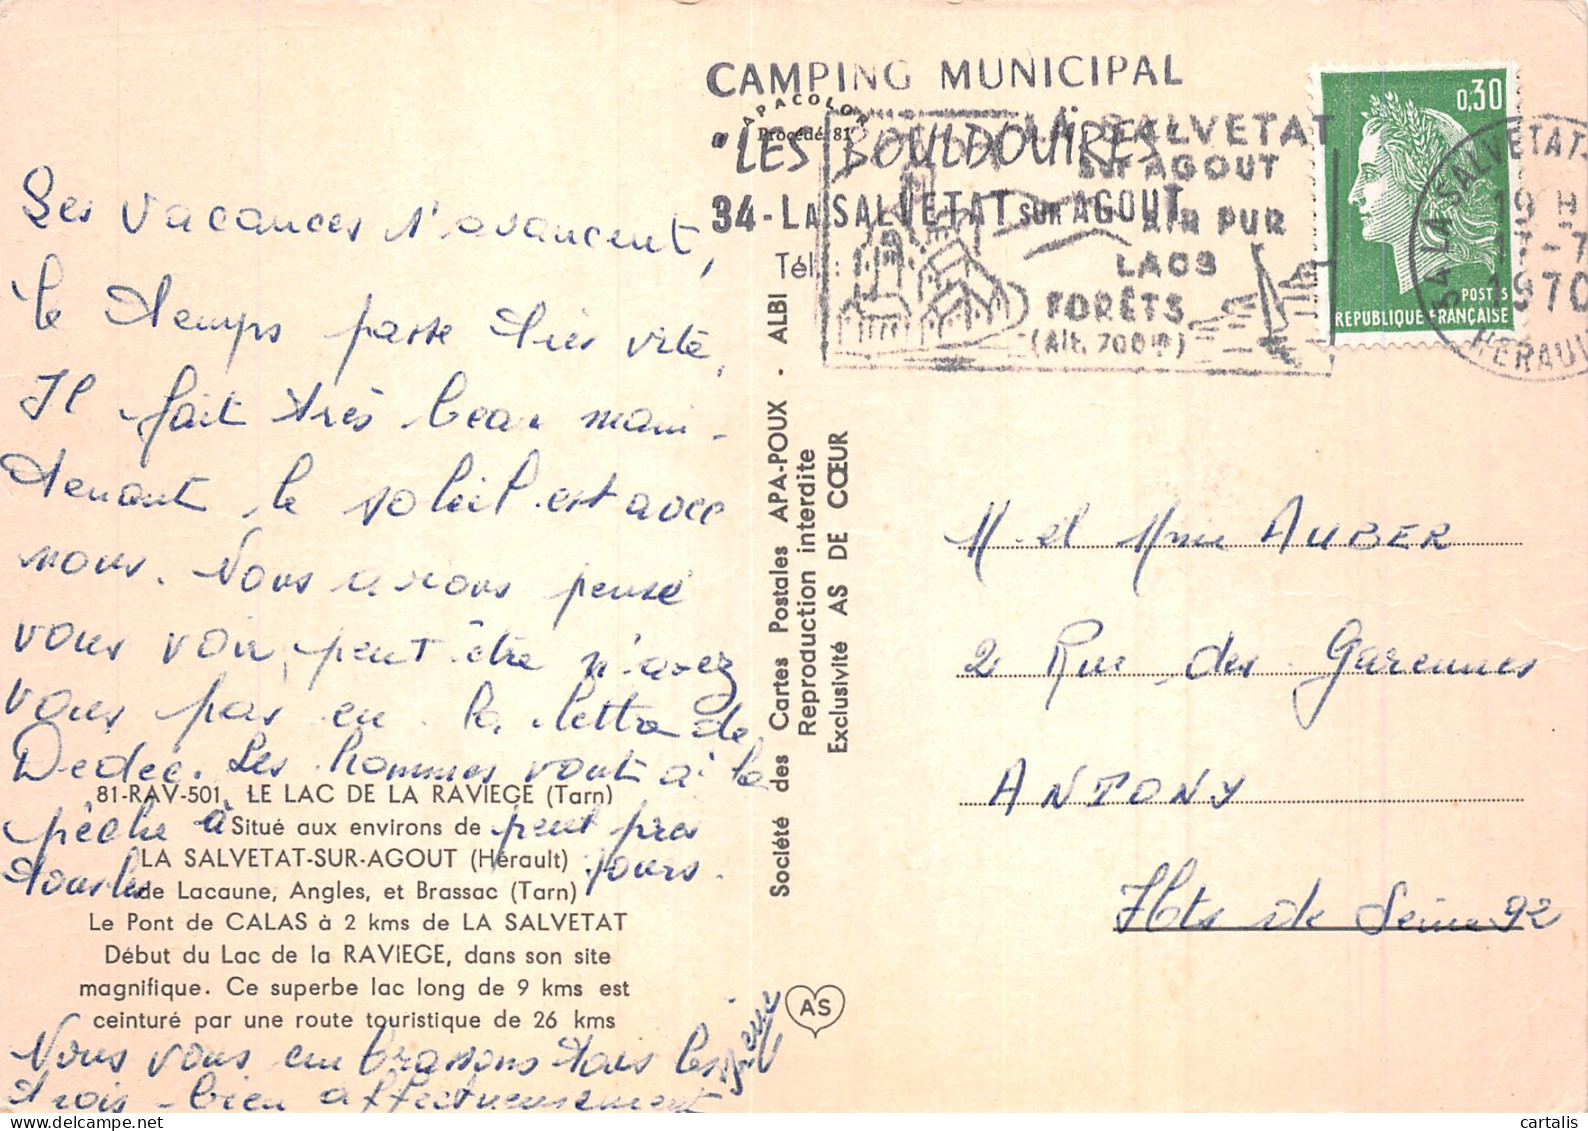 CAMPING MUNICIPAL
APACOLOR
Procédé 81
"LES BOULDOUIRES"
34 - LA SALVETAT SUR AGOUT
Tél. :
LA SALVETAT
sur AGOUT
AIR PUR
LACS
FORÊTS
(Alt. 700 m)
0,30
POSTES
REPUBLIQUE FRANÇAISE
34 LA SALVETAT-
19 H
17-7
1970
HERAULT
Les vacances s'avancent,
le temps passe très vite,
Il fait très beau main-
tenant le soleil est avec
nous. Nous avions pensé
vous voir, peut être n'avez
vous pas eu la lettre de
Dédée. Les hommes vont à la
pêche à peut pres
tous les jours.
81-RAV-501. LE LAC DE LA RAVIEGE (Tarn)
Situé aux environs de
LA SALVETAT-SUR-AGOUT (Hérault)
de Lacaune, Angles, et Brassac (Tarn)
Le Pont de CALAS à 2 kms de LA SALVETAT
Début du Lac de la RAVIEGE, dans son site
magnifique. Ce superbe lac long de 9 kms est
ceinturé par une route touristique de 26 kms
Nous vous embrassons tous les
trois bien affectueusement
Société des Cartes Postales APA-POUX - ALBI
Reproduction interdite
Exclusivité AS DE CŒUR
AS
M. et Mme AUBER
2 Rue des Garennes
ANTONY
Hts de Seine 92
cartalis